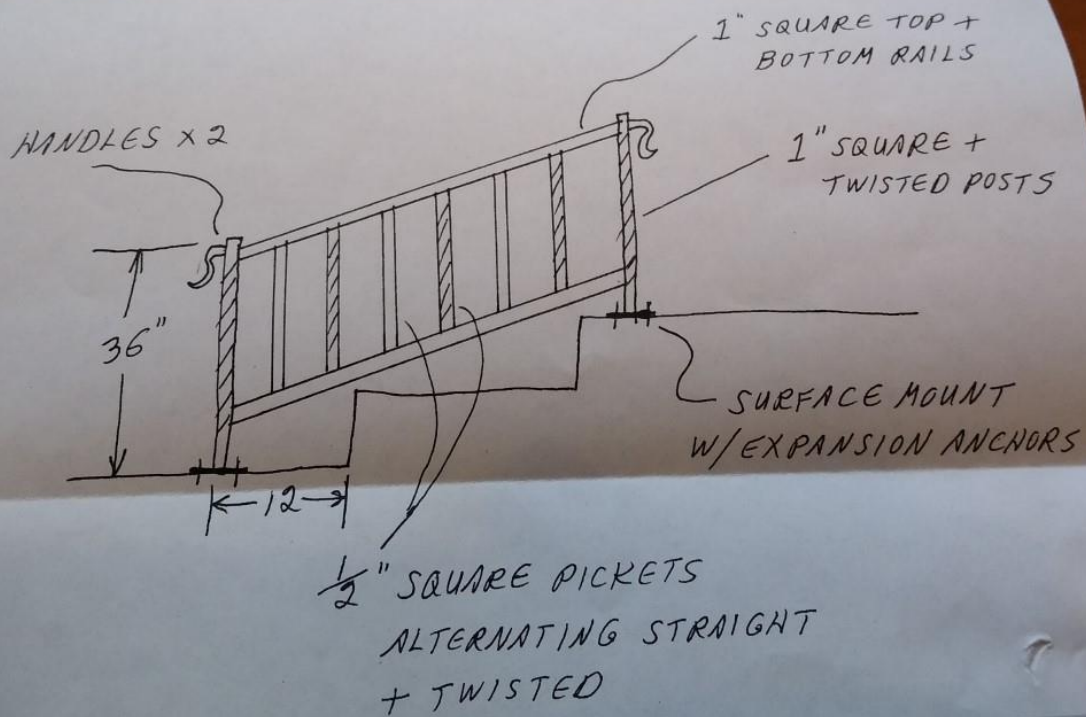 1" SQUARE TOP +
BOTTOM RAILS
HANDLES X 2
1" SQUARE +
TWISTED POSTS
36"
SURFACE MOUNT
W/ EXPANSION ANCHORS
12
1/2" SQUARE PICKETS
ALTERNATING STRAIGHT
+ TWISTED